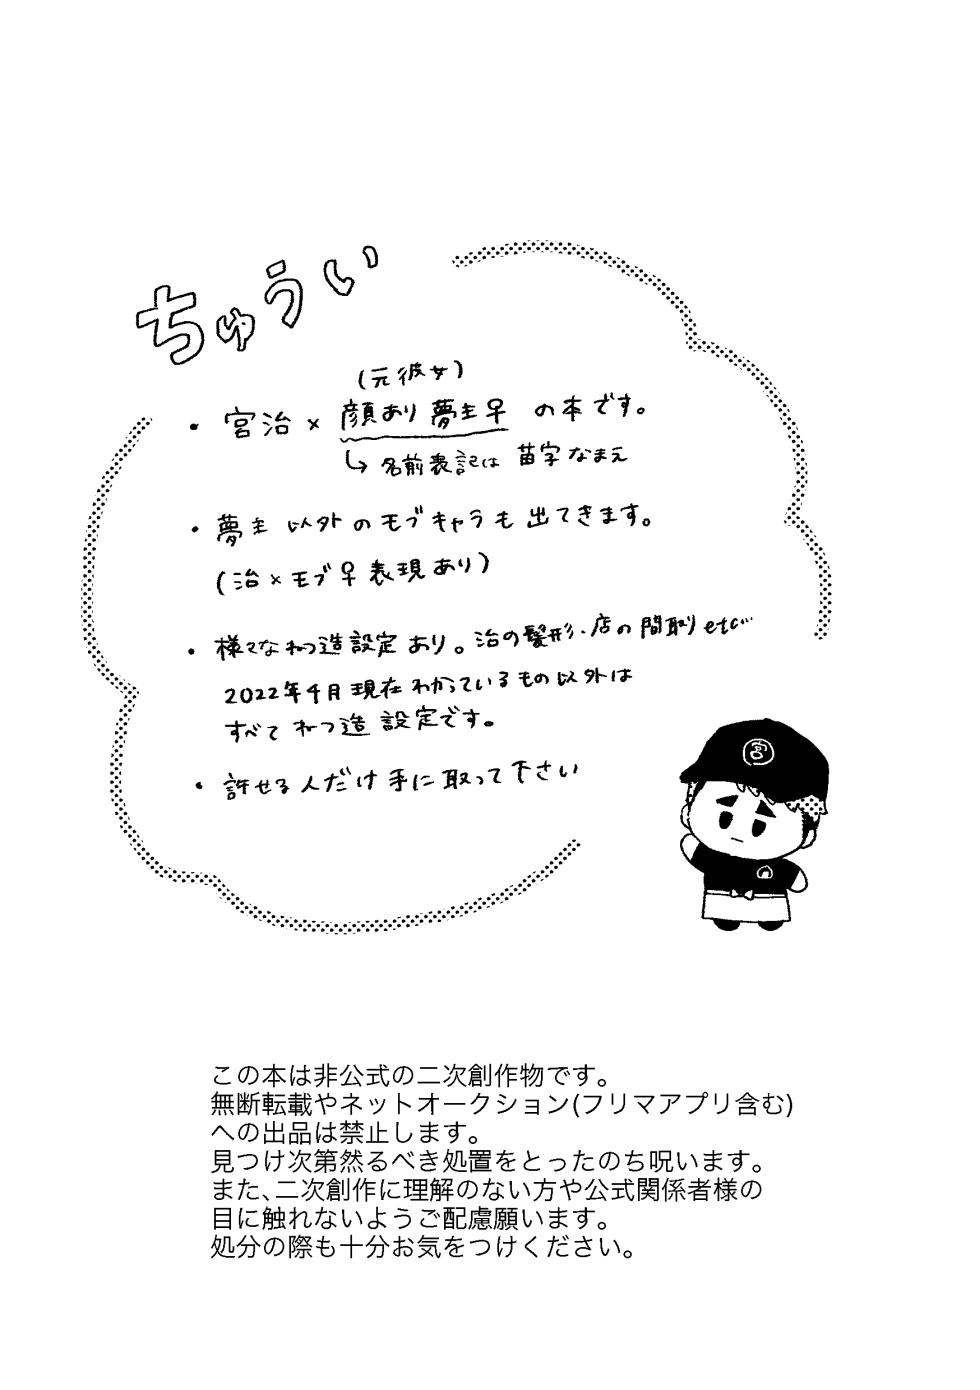 ちゅうい
(元彼女)
・宮治×顔あり夢主♀の本です。
↳名前表記は 苗字なまえ
・夢主以外のモブキャラも出てきます。
(治×モブ♀表現あり)
・様々なねつ造設定あり。治の髪形・店の間取りetc…
2022年4月現在わかっているもの以外は
すべてねつ造設定です。
・許せる人だけ手に取って下さい
宮
この本は非公式の二次創作物です。
無断転載やネットオークション(フリマアプリ含む)
への出品は禁止します。
見つけ次第然るべき処置をとったのち呪います。
また、二次創作に理解のない方や公式関係者様の
目に触れないようご配慮願います。
処分の際も十分お気をつけください。